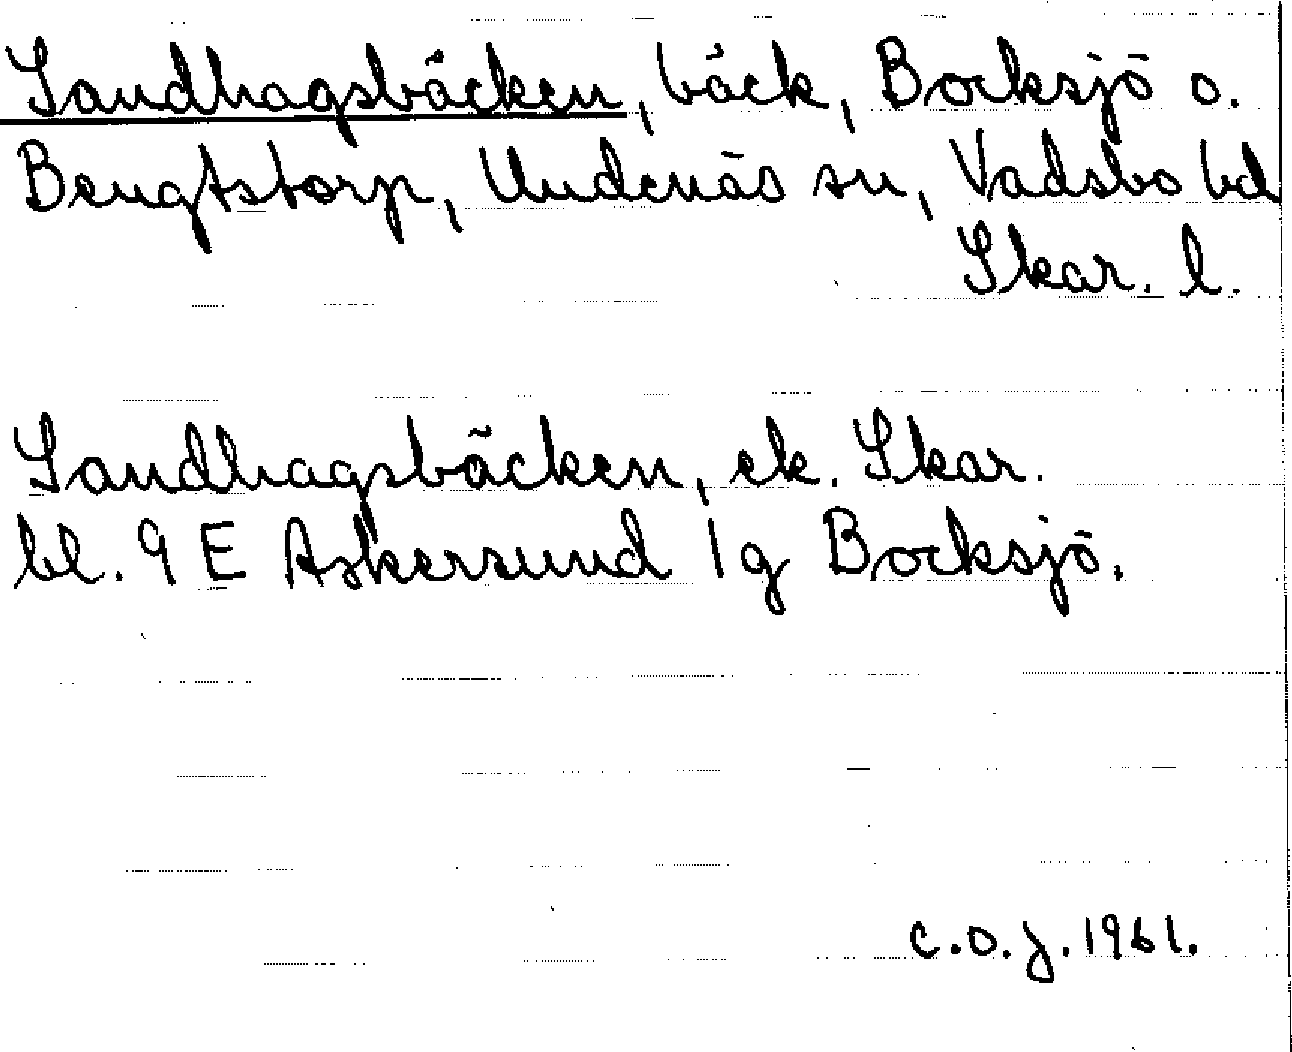 Sandhagsbäcken, bäck, Bocksjö o.
Bengtstorp, Undenäs sn, Vadsbo hd
Skar. l.
Sandhagsbäcken, ek. Skar.
bl. 9 E Askersund 1g Bocksjö.
C.O.J. 1961.